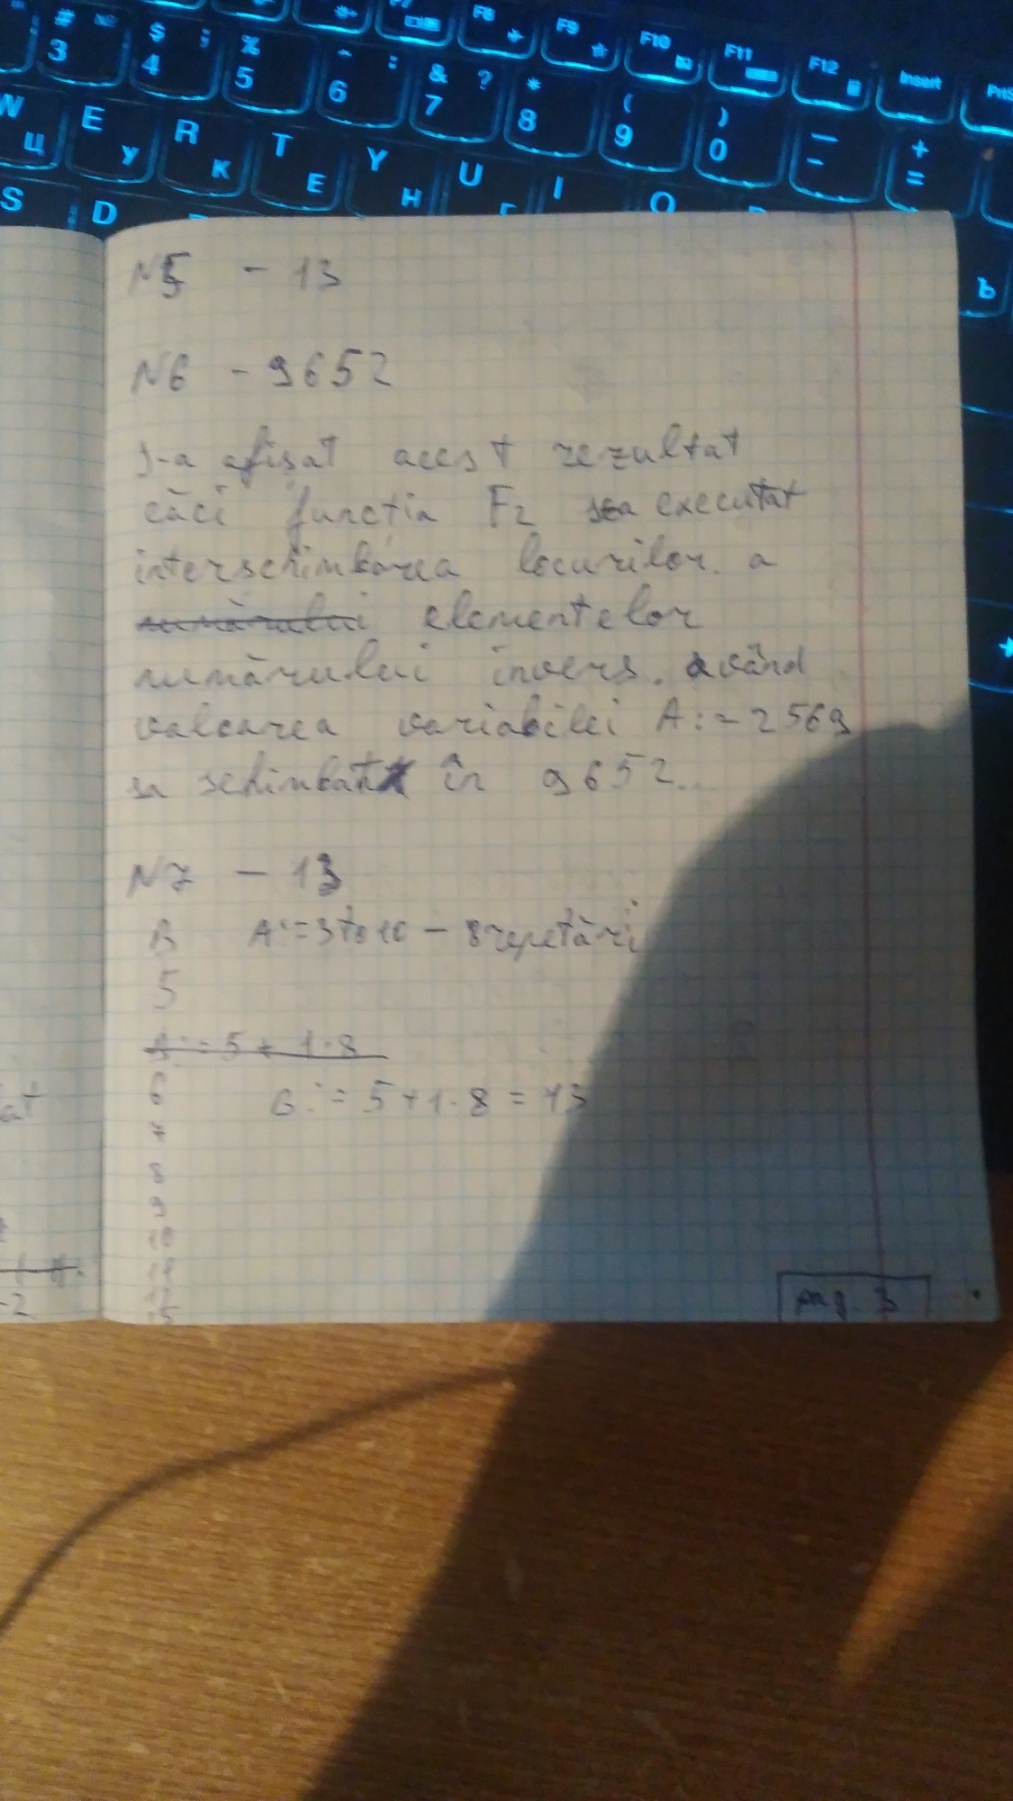 F8
F9
F10
F11
F12
Insert
# 3 №
$ 4 ;
% 5
^ 6 :
& 7 ?
* 8
( 9
) 0
+ =
W Ц
E У
R К
T Е
Y Н
U Г
I
O
S
D
Ъ
N5 - 13
N6 - 9652
S-a afișat acest rezultat
căci funcția F2 sa executat
interschimbarea locurilor a
numărului elementelor
numărului invers. având
valoarea variabilei A:=2569
sa schimbat în 9652.
N7 - 13
B A:=3 to 10 - 8 repetări
5
A:=5+1·8
6 G:=5+1·8=13
7
8
9
10
11
12
pag. 3
at
-2